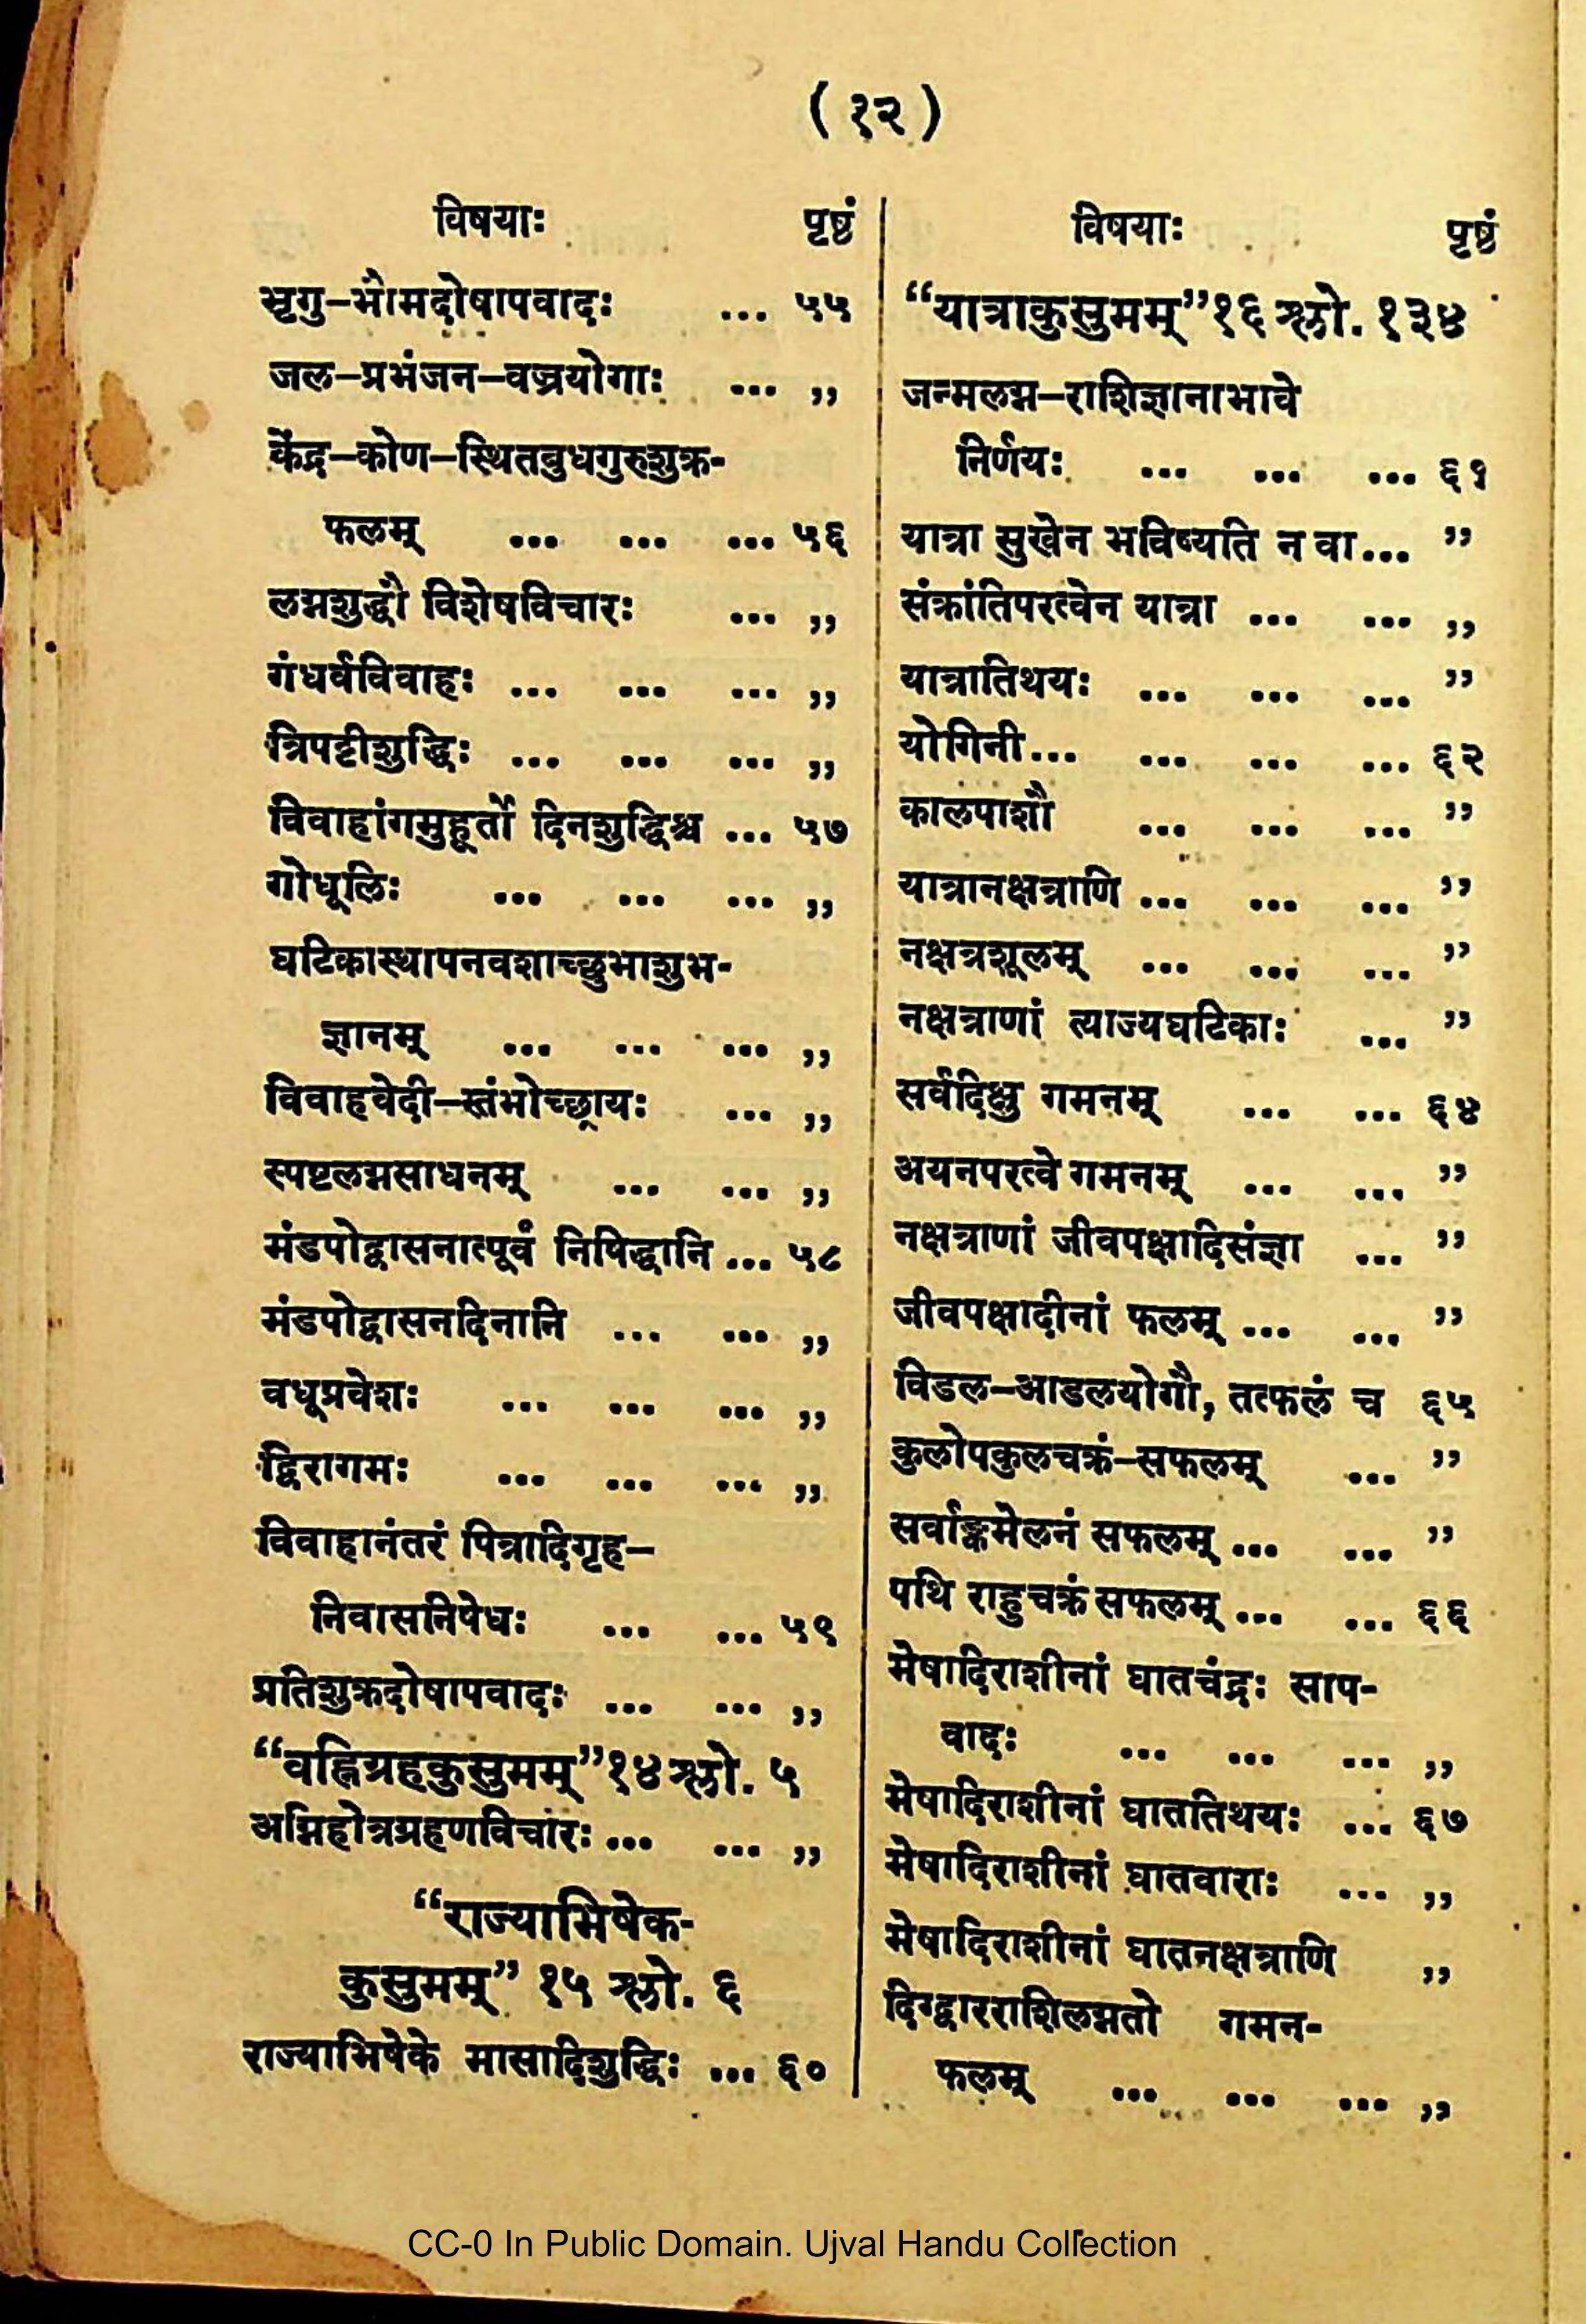 ( १२ )
विषयाः पृष्ठं
भृगु–भौमदोषापवादः ... ५५
जल–प्रभंजन–वज्रयोगाः ... ,,
केंद्र–कोण–स्थितबुधगुरुशुक्र-
फलम् ... ... ... ५६
लग्नशुद्धौ विशेषविचारः ... ,,
गंधर्वविवाहः ... ... ... ,,
त्रिपट्टीशुद्धिः ... ... ... ,,
विवाहांगमुहूर्तो दिनशुद्धिश्च ... ५७
गोधूलिः ... ... ... ,,
घटिकास्थापनवशाच्छुभाशुभ-
ज्ञानम् ... ... ... ,,
विवाहवेदी–स्तंभोच्छ्रायः ... ,,
स्पष्टलग्नसाधनम् ... ... ,,
मंडपोद्वासनात्पूर्वं निषिद्धानि ... ५८
मंडपोद्वासनदिनानि ... ... ,,
वधूप्रवेशः ... ... ... ,,
द्विरागमः ... ... ... ,,
विवाहानंतरं पित्रादिगृह–
निवासनिषेधः ... ... ५९
प्रतिशुक्रदोषापवादः ... ... ,,
“वह्निग्रहकुसुमम्”१४ श्लो. ५
अग्निहोत्रग्रहणविचारः ... ... ,,
“राज्याभिषेक-
कुसुमम्” १५ श्लो. ६
राज्याभिषेके मासादिशुद्धिः ... ६०
विषयाः पृष्ठं
“यात्राकुसुमम्”१६ श्लो. १३४
जन्मलग्न–राशिज्ञानाभावे
निर्णयः ... ... ... ६१
यात्रा सुखेन भविष्यति न वा... ,,
संक्रांतिपरत्वेन यात्रा ... ... ,,
यात्रातिथयः ... ... ... ,,
योगिनी... ... ... ... ६२
कालपाशौ ... ... ... ,,
यात्रानक्षत्राणि ... ... ... ,,
नक्षत्रशूलम् ... ... ... ,,
नक्षत्राणां त्याज्यघटिकाः ... ,,
सर्वदिक्षु गमनम् ... ... ६४
अयनपरत्वे गमनम् ... ... ,,
नक्षत्राणां जीवपक्षादिसंज्ञा ... ,,
जीवपक्षादीनां फलम् ... ... ,,
विडल–आडलयोगौ, तत्फलं च ६५
कुलोपकुलचक्रं–सफलम् ... ,,
सर्वाङ्कमेलनं सफलम् ... ... ,,
पथि राहुचक्रं सफलम् ... ... ६६
मेषादिराशीनां घातचंद्रः साप-
वादः ... ... ... ,,
मेषादिराशीनां घाततिथयः ... ६७
मेषादिराशीनां घातवाराः ... ,,
मेषादिराशीनां घातनक्षत्राणि ,,
दिग्द्वारराशिलग्नतो गमन-
फलम् ... ... ... ,,
CC-0 In Public Domain. Ujval Handu Collection